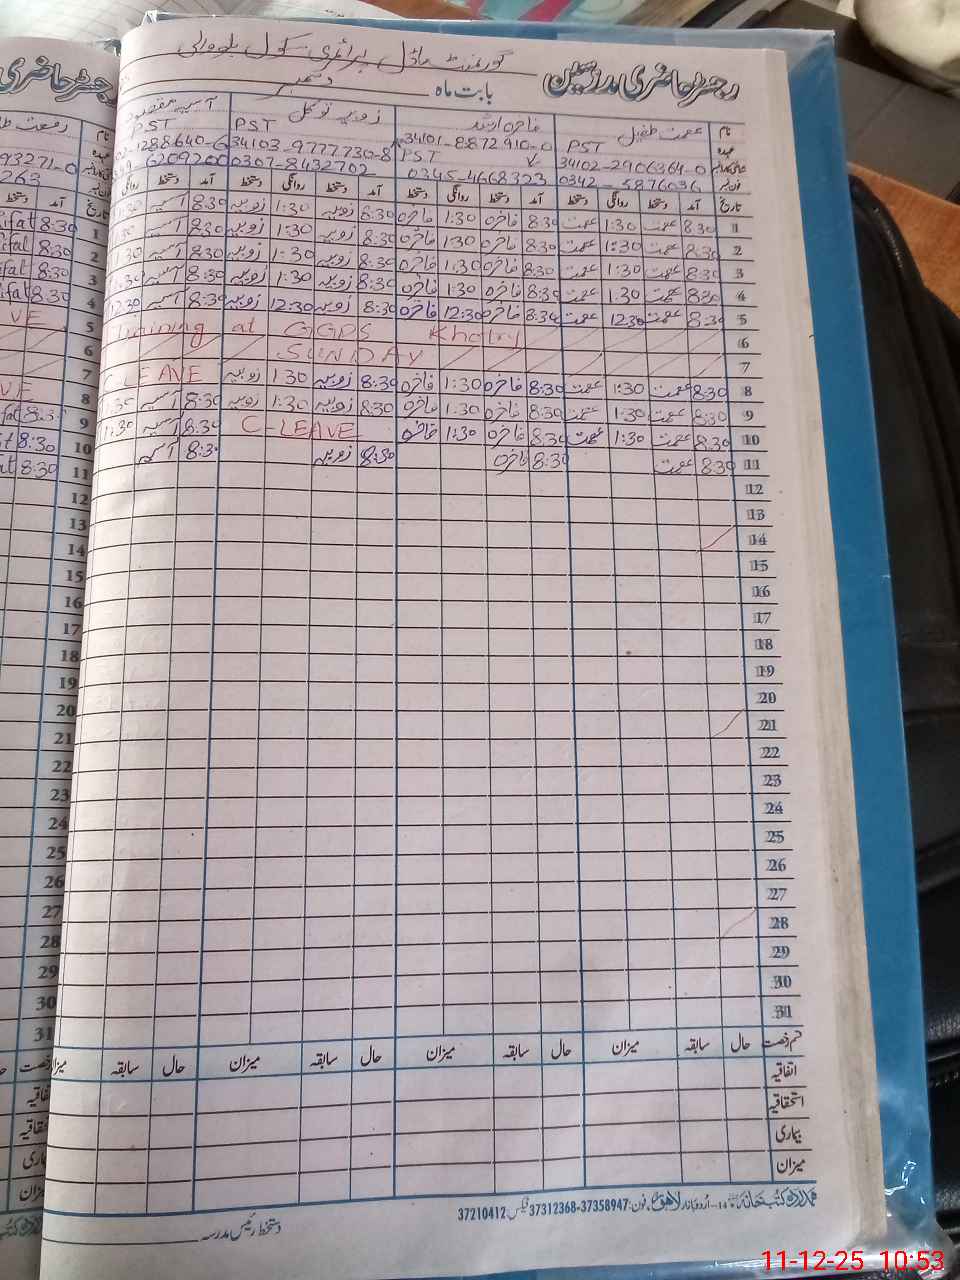 رجسٹر حاضری مدرسین گورنمنٹ ماڈل پرائمری سکول
بابت ماہ دسمبر
نام عصمت طفیل فاخرہ ارشد زوبیہ توکل آسیہ مقصود
عہدہ PST PST PST PST
34102-2906364-0 34101-8872910-0 34103-9777730-8 1288640-6
0342-5876036 0345-4668323 0307-8432702 6209200
تاریخ آمد دستخط روانگی دستخط آمد دستخط روانگی دستخط آمد دستخط روانگی دستخط آمد دستخط روانگی
1 8:30 عصمت 1:30 عصمت 8:30 فاخرہ 1:30 فاخرہ 8:30 زوبیہ 1:30 زوبیہ 8:30 آسیہ 1:30
2 8:30 عصمت 1:30 عصمت 8:30 فاخرہ 1:30 فاخرہ 8:30 زوبیہ 1:30 زوبیہ 8:30 آسیہ 1:30
3 8:30 عصمت 1:30 عصمت 8:30 فاخرہ 1:30 فاخرہ 8:30 زوبیہ 1:30 زوبیہ 8:30 آسیہ 1:30
4 8:30 عصمت 1:30 عصمت 8:30 فاخرہ 1:30 فاخرہ 8:30 زوبیہ 1:30 زوبیہ 8:30 آسیہ 1:30
5 8:30 عصمت 12:30 عصمت 8:30 فاخرہ 12:30 فاخرہ 8:30 زوبیہ 12:30 زوبیہ 8:30 آسیہ 12:30
6 Training at GGPS Kholry
7 SUNDAY
8 8:30 عصمت 1:30 عصمت 8:30 فاخرہ 1:30 فاخرہ 8:30 زوبیہ 1 30 زوبیہ C LEAVE
9 8:30 عصمت 1:30 عصمت 8:30 فاخرہ 1:30 فاخرہ 8:30 زوبیہ 1:30 زوبیہ 8:30 آسیہ 1:30
10 8:30 عصمت 1:30 عصمت 8:30 فاخرہ 1:30 فاخرہ C-LEAVE 8:30 آسیہ 1:30
11 8:30 عصمت 8:30 فاخرہ 8:30 زوبیہ 8:30 آسیہ
12
13
14
15
16
17
18
19
20
21
22
23
24
25
26
27
28
29
30
31
قسم رخصت حال سابقہ میزان حال سابقہ میزان حال سابقہ میزان حال سابقہ
اتفاقیہ
استحقاقیہ
بیماری
میزان
ہمدرد کتب خانہ 14-اُردو بازار لاہور فون: 37358947-37312368 فیکس: 37210412
دستخط رئیس مدرسہ
رجسٹر حاضری
رفعت
93271-0
263
آمد دستخط
1 8:30 Rifat
2 8:30
3 8:30
4 8:30
5 VE
6
7
8 VE
9 8:30
10 8:30
11 8:30
12
13
14
15
16
17
18
19
20
21
22
23
24
25
26
27
28
29
30
31
11-12-25 10:53